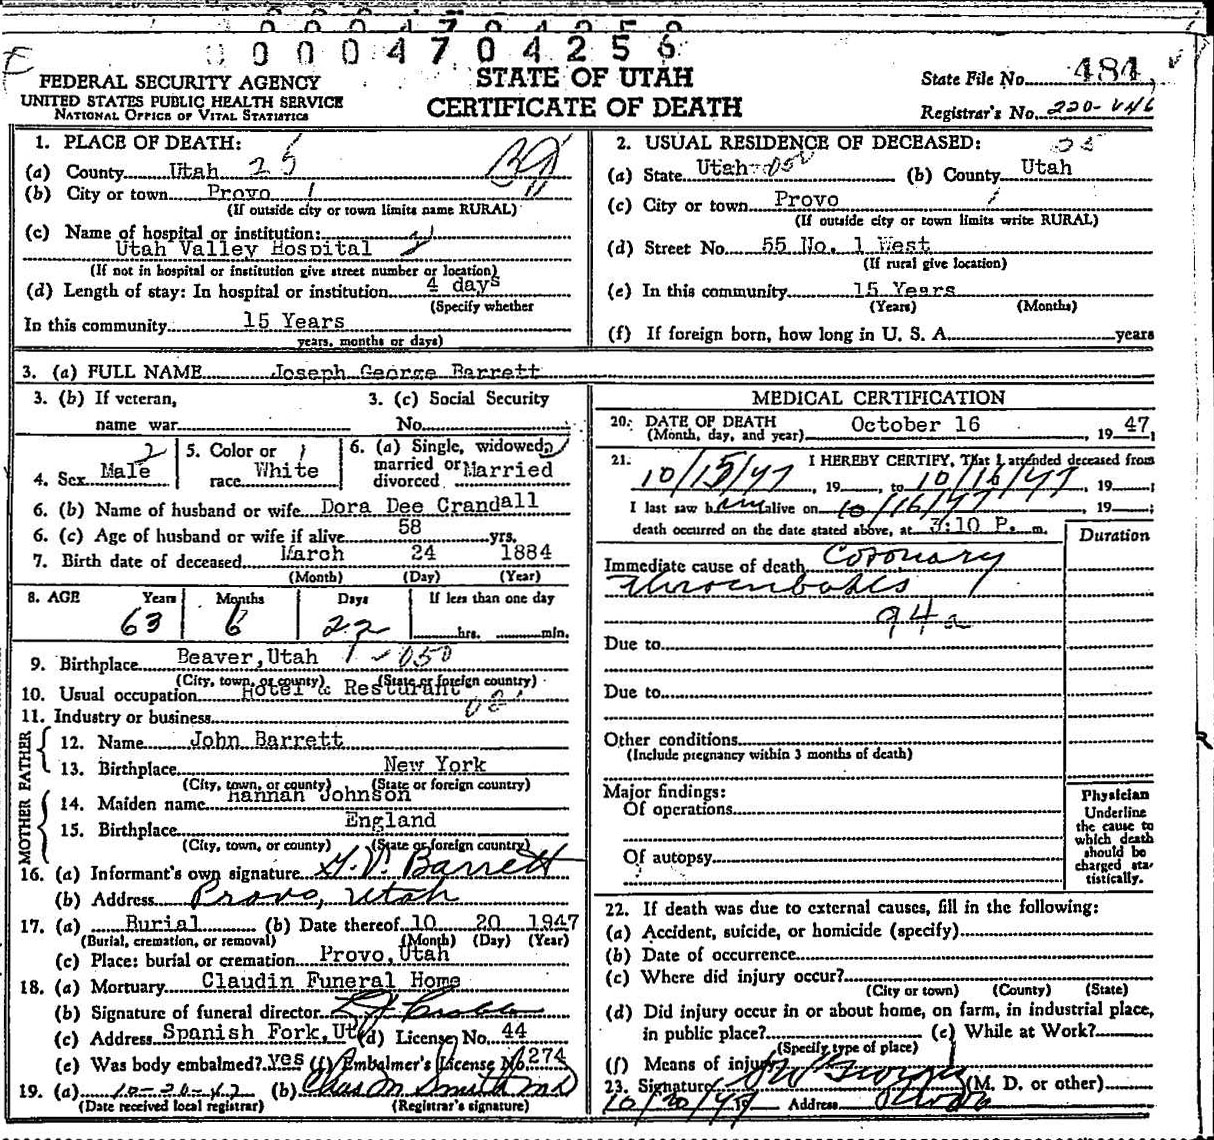 00004704256
FEDERAL SECURITY AGENCY
UNITED STATES PUBLIC HEALTH SERVICE
NATIONAL OFFICE OF VITAL STATISTICS
STATE OF UTAH
CERTIFICATE OF DEATH
State File No. 484
Registrar's No. 220-
1. PLACE OF DEATH:
(a) County Utah 25
(b) City or town Provo 1
(If outside city or town limits name RURAL)
(c) Name of hospital or institution:
Utah Valley Hospital
(If not in hospital or institution give street number or location)
(d) Length of stay: In hospital or institution 4 days
(Specify whether
In this community 15 Years
years, months or days)
2. USUAL RESIDENCE OF DECEASED:
(a) State Utah (b) County Utah
(c) City or town Provo
(If outside city or town limits write RURAL)
(d) Street No. 55 No. 1 West
(If rural give location)
(e) In this community 15 Years
(Years) (Months)
(f) If foreign born, how long in U. S. A. years
3. (a) FULL NAME Joseph George Barrett
3. (b) If veteran, 3. (c) Social Security
name war No.
4. Sex Male 2
5. Color or 1
race White
6. (a) Single, widowed
married or Married
divorced
6. (b) Name of husband or wife Dora Dee Crandall
6. (c) Age of husband or wife if alive 58 yrs.
7. Birth date of deceased March 24 1884
(Month) (Day) (Year)
8. AGE Years Months Days If less than one day
63 6 22 hrs. min.
9. Birthplace Beaver, Utah 1 - 050
(City, town, or county) (State or foreign country)
10. Usual occupation Hotel & Resturant
11. Industry or business
FATHER
12. Name John Barrett
13. Birthplace New York
(City, town, or county) (State or foreign country)
MOTHER
14. Maiden name Hannah Johnson
15. Birthplace England
(City, town, or county) (State or foreign country)
16. (a) Informant's own signature Barrett
(b) Address Provo, Utah
17. (a) Burial (b) Date thereof 10 20 1947
(Burial, cremation, or removal) (Month) (Day) (Year)
(c) Place: burial or cremation Provo, Utah
18. (a) Mortuary Claudin Funeral Home
(b) Signature of funeral director
(c) Address Spanish Fork, Ut (d) License No. 44
(e) Was body embalmed? yes (f) Embalmer's License No. 274
19. (a) 10-20-47 (b) Chas M Smith MD
(Date received local registrar) (Registrar's signature)
MEDICAL CERTIFICATION
20. DATE OF DEATH October 16, 1947;
(Month, day, and year)
21. I HEREBY CERTIFY, That I attended deceased from
10/15/47, 19 to 10/16/47, 19 ;
I last saw him alive on 10/16/47, 19 ;
death occurred on the date stated above, at 3:10 P. m.
Duration
Immediate cause of death Coronary
Thrombosis
94a
Due to
Due to
Other conditions
(Include pregnancy within 3 months of death)
Major findings:
Of operations
Of autopsy
Physician
Underline
the cause to
which death
should be
charged sta-
tistically.
22. If death was due to external causes, fill in the following:
(a) Accident, suicide, or homicide (specify)
(b) Date of occurrence
(c) Where did injury occur?
(City or town) (County) (State)
(d) Did injury occur in or about home, on farm, in industrial place,
in public place? (e) While at Work?
(Specify type of place)
(f) Means of injury
23. Signature (M. D. or other)
10/20/47 19 Address Provo